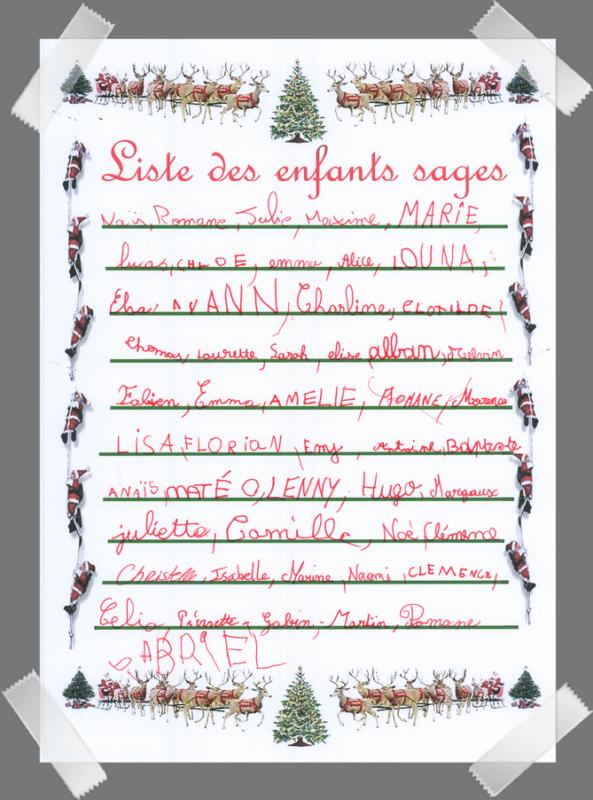 Liste des enfants sages
Naïs, Romane, Julie, Maxime, MARIE,
lucas, CHLOE, emma, Alice, LOUNA,
YANN, Charline, CLOTILDE,
thomas, laurette, Sarah, elise alban, Melvin
Fabien, Emma, AMELIE, ROMANE, Maxence
LISA, FLORiAN, Emy, Antoine, Baptiste
ANAÏS, MATÉO, LENNY, Hugo, Margaux
juliette, Camille, Noé, Clémence
Christelle, Isabelle, Marine, Naomi, CLEMENCE,
Celia, Pierrette, Gabin, Martin, Romane
GABRIEL